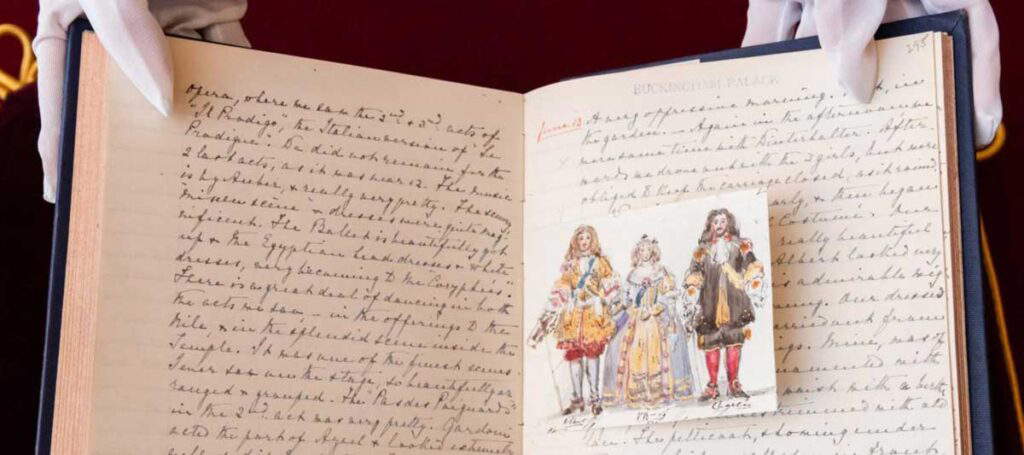 Opera, where we saw the 2nd & 3rd acts of
"Il Prodigo", the Italian version of "Le
Prodigue". We did not remain for the
2 last acts, as it was near 12. The music
is by Auber, & really very pretty. The scenery,
"mise en scène" & dresses were quite mag-
nificent. The Ballet is beautifully got
up & the Egyptian head dresses & white
dresses, very becoming to the "Coryphées".
There is a great deal of dancing in both
the acts we saw – in the offerings to the
Nile, & in the splendid scene inside the
Temple. It was one of the finest scenes
I ever saw on the stage, so beautifully ar-
ranged & grouped. The "Pas des Poignards"
in the 2nd act was very pretty. Gardoni
acted the part of Azael & looked extremely
295
BUCKINGHAM PALACE
June 13. A very oppressive morning. in
the garden. – Again in the afternoon
some time with Winterhalter. After-
wards we drove out with the 2 girls, but were
obliged to keep the carriage closed, as it rained
early, & then began
Costume. Our
really beautiful
Albert looked very
admirable wig
Our dresses
carried out from
Mine, was of
ornamented with
with a
trimmed with old
The petticoat, showing under